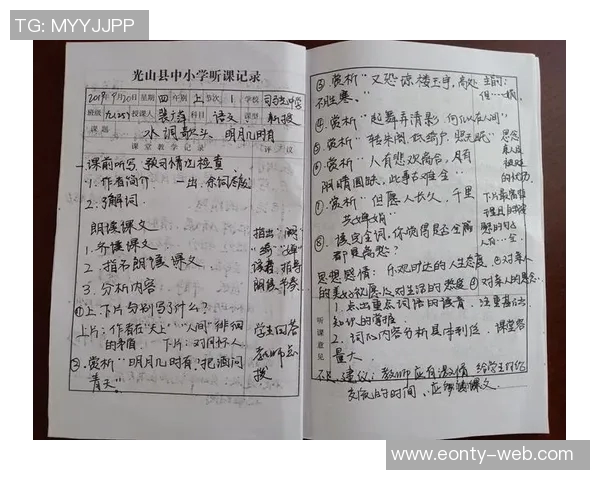 TG: MYYJJPP
光山县中小学听课记录
2019年9月20日 星期 四 年级 上 节次 1 学校 司马光中学
班级 九(257) 授课人 科目 语文 课型 新授
课题 水调歌头·明月几时有
课堂教学记录 评议
课前听写、预习情况检查
1. 作者简介
2. 了解词
朗读课文
1. 齐读课文
2. 指名朗读课文
3. 分析内容
①上、下片分别写了什么?
上片:作者在"天上""人间"徘徊
的矛盾 下片:对月怀人
②. 赏析"明月几时有,把酒问
青天"
指出"阙"
读音,指导
朗读、节奏
学生回答
教师点
拨
③. 赏析"又恐琼楼玉宇,高处
不胜寒。"
④. 赏析"起舞弄清影,何似在人间"
⑤. 赏析"转朱阁,低绮户,照无眠"
⑥. 赏析"人有悲欢离合,月有
阴晴圆缺,此事古难全"
⑦. 赏析"但愿人长久,千里
共婵娟"
⑧. 读完全词,你觉得是否全篇
都是离愁?
思想感情: 乐观旷达的人生态度 ②对亲人
的美好祝愿 ③对生活的热爱 ④对亲人的思念
听课意见
1. 点出重点词语的读音 注重基础
知识的掌握
2. 词的内容分析具体到位,课堂容
量大。
建议:教师应有激情 给学生时间
应 课文
www.eonty-web.com